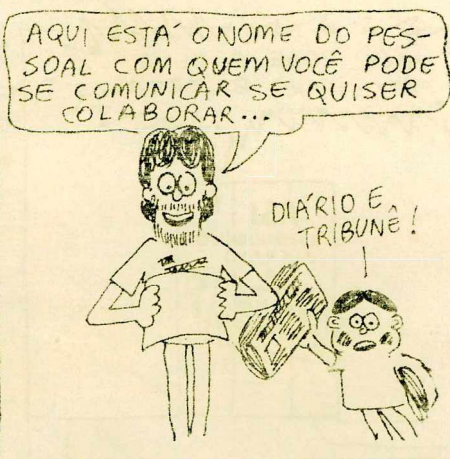 AQUI ESTÁ O NOME DO PES-
SOAL COM QUEM VOCÊ PODE
SE COMUNICAR SE QUISER
COLABORAR...
DIÁRIO E
TRIBUNÊ!